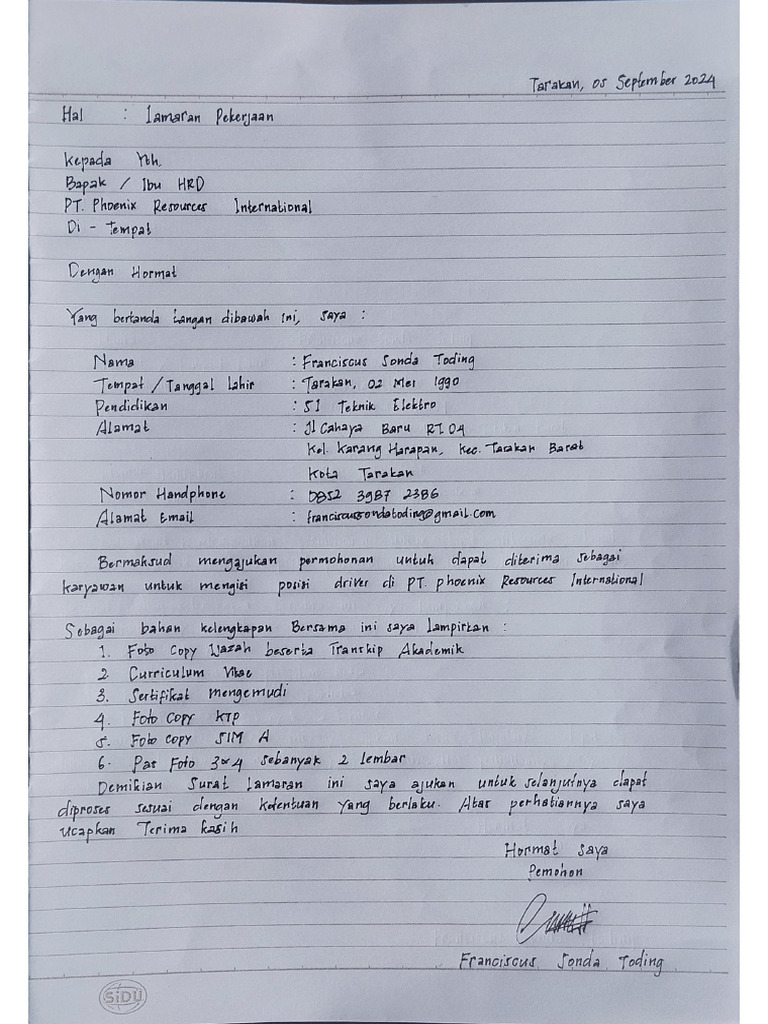 Tarakan, 05 September 2024
Hal : Lamaran Pekerjaan
Kepada Yth.
Bapak / Ibu HRD
PT. Phoenix Resources International
Di - Tempat
Dengan Hormat
Yang bertanda tangan dibawah ini, saya :
Nama : Franciscus Sonda Toding
Tempat / Tanggal Lahir : Tarakan, 02 Mei 1990
Pendidikan : S1 Teknik Elektro
Alamat : Jl Cahaya Baru RT. 04
Kel. Karang Harapan, Kec. Tarakan Barat
Kota Tarakan
Nomor Handphone : 0852 3987 2386
Alamat Email : franciscussondatoding@gmail.com
Bermaksud mengajukan permohonan untuk dapat diterima sebagai
karyawan untuk mengisi posisi driver di PT. Phoenix Resources International
Sebagai bahan kelengkapan Bersama ini saya Lampirkan :
1. Foto Copy Ijazah beserta Transkip Akademik
2. Curriculum Vitae
3. Sertifikat mengemudi
4. Foto Copy KTP
5. Foto Copy SIM A
6. Pas Foto 3x4 sebanyak 2 lembar
Demikian Surat Lamaran ini saya ajukan untuk selanjutnya dapat
diproses sesuai dengan ketentuan yang berlaku. Atas perhatiannya saya
ucapkan Terima kasih
Hormat saya
Pemohon
Franciscus Sonda Toding
SiDU